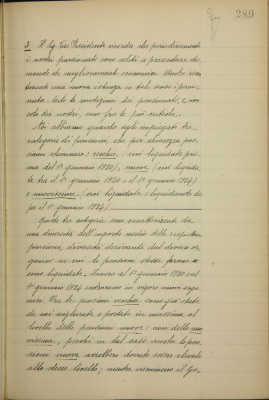 289
3. Il Sig. Vice Presidente ricorda che periodicamente
i nostri pensionati sono soliti a presentare do-
mande di miglioramenti economici. Anche recen-
temente una nuova istanza in tale senso è perve-
nuta: certo le condizioni dei pensionati, e non
solo dei nostri, sono fra le più critiche.
Noi abbiamo quanto agli impiegati tre
categorie di pensioni, che per chiarezza pos-
siamo chiamare: vecchie, (cioè liquidate pri-
ma del 1° gennaio 1920), nuove (cioè liquida-
te tra il 1° gennaio 1920 e il 1° gennaio 1924)
e nuovissime (cioè liquidate o liquidande do-
po il 1° gennaio 1924).
Queste tre categorie sono caratterizzate da
una diversità dell'importo medio delle rispettive
pensioni, diversità derivante dal diverso or-
ganico su cui le pensioni stesse furono o
sono liquidate. Invero al 1° gennaio 1920 e al
1° gennaio 1924 entrarono in vigore nuovi orga-
nici. Ora le pensioni vecchie sono già state
da noi migliorate e portate in massima al
livello delle pensioni nuove: non delle nuo-
vissime, perchè in tal caso anche le pen-
sioni nuove avrebbero dovuto essere elevate
alla stesso livello; mentre nemmeno il Go-